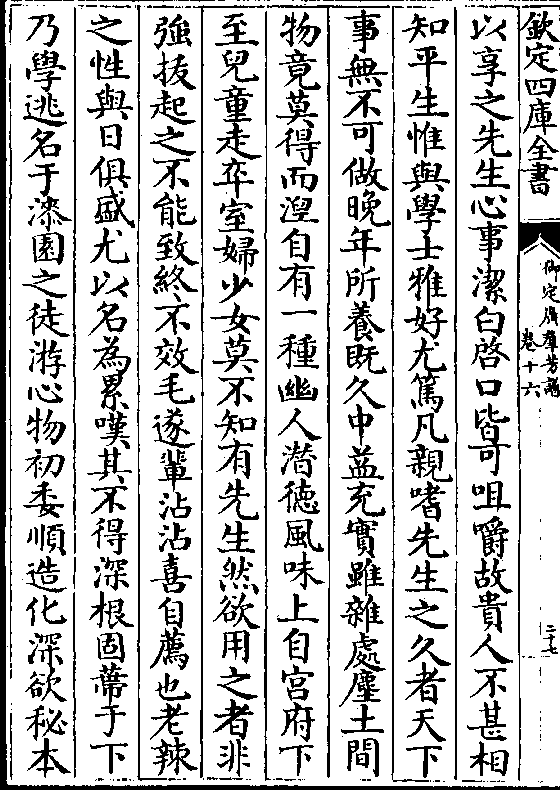 欽定四庫全書
御定廣羣芳譜
卷十六
二十七
以享之先生心事潔白啓口皆可咀嚼故貴人不甚相
知平生惟與學士雅好尤篤凡親嗜先生之久者天下
事無不可做晚年所養既久中益充實雖雜處塵土間
物竟莫得而湼自有一種幽人潛德風味上自宮府下
至兒童走卒室婦少女莫不知有先生然欲用之者非
強拔起之不能致終不效毛遂輩沾沾喜自薦也老辣
之性與日俱盛尤以名為累嘆其不得深根固蔕于下
乃學逃名于漆園之徒游心物初委順造化深欲秘本